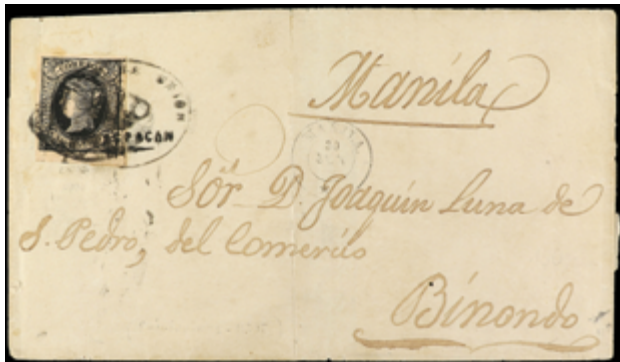 CORREOS
UNION
NACPACAN
Manila
MANILA
Sōr D. Joaquin Luna de
S. Pedro, del Comercio
Binondo